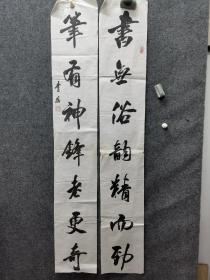 書無俗韵精而勁
筆有神鋒老更奇